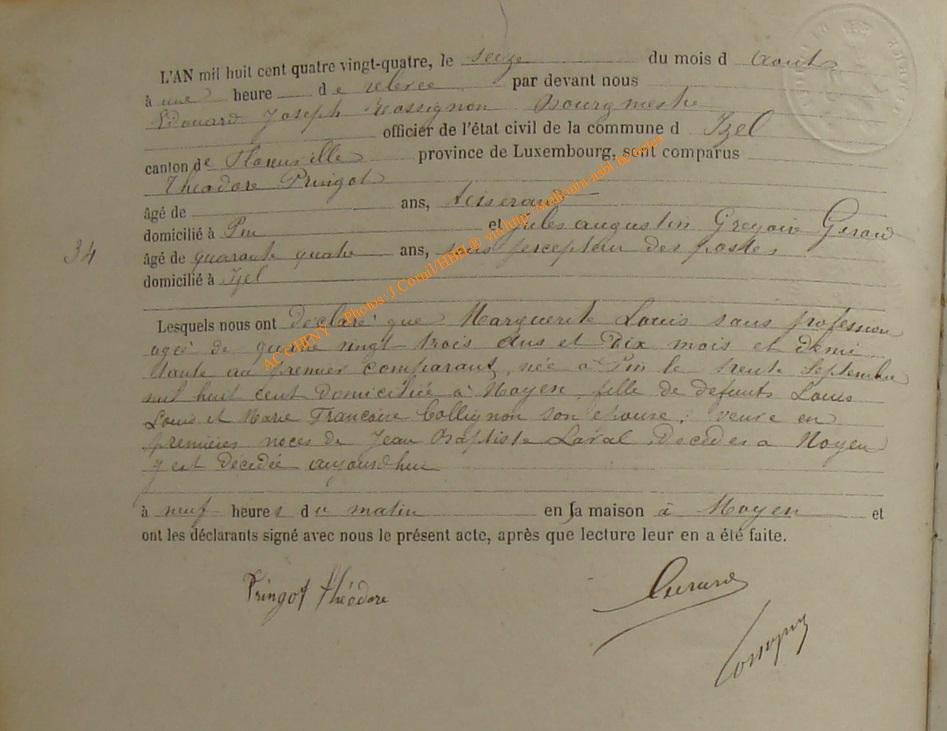 L'AN mil huit cent quatre vingt-quatre, le seize du mois d'Août
à une heure de relevée par devant nous
Edouard Joseph Rossignon Bourgmestre
officier de l'état civil de la commune d Izel
canton de Florenville province de Luxembourg, sont comparus
Théodore Pringot
âgé de ans, tisserand
domicilié à Pin et Jules augustin Gregoire Gerard
34
âgé de quarante quatre ans, sous percepteur des postes
domicilié à Izel
Lesquels nous ont déclaré que Marguerite Louis sans profession
agée de quatre vingt trois ans et Dix mois et demi
tante au premier comparant, née à Pin le trente Septembre
mil huit cent Domiciliée à Moyen, fille de defunts Louis
Louis et Marie Francoise Collignon son épouse; veuve en
premières noces de Jean Baptiste Laval Décédés a Moyen
y est décédée aujourdhui
à neuf heures du matin en sa maison à Moyen et
ont les déclarants signé avec nous le présent acte, après que lecture leur en a été faite.
Pringot théodore
Gerard
Rossignon
ACCHBNY - Photos: J Conil/HBN @ via http: